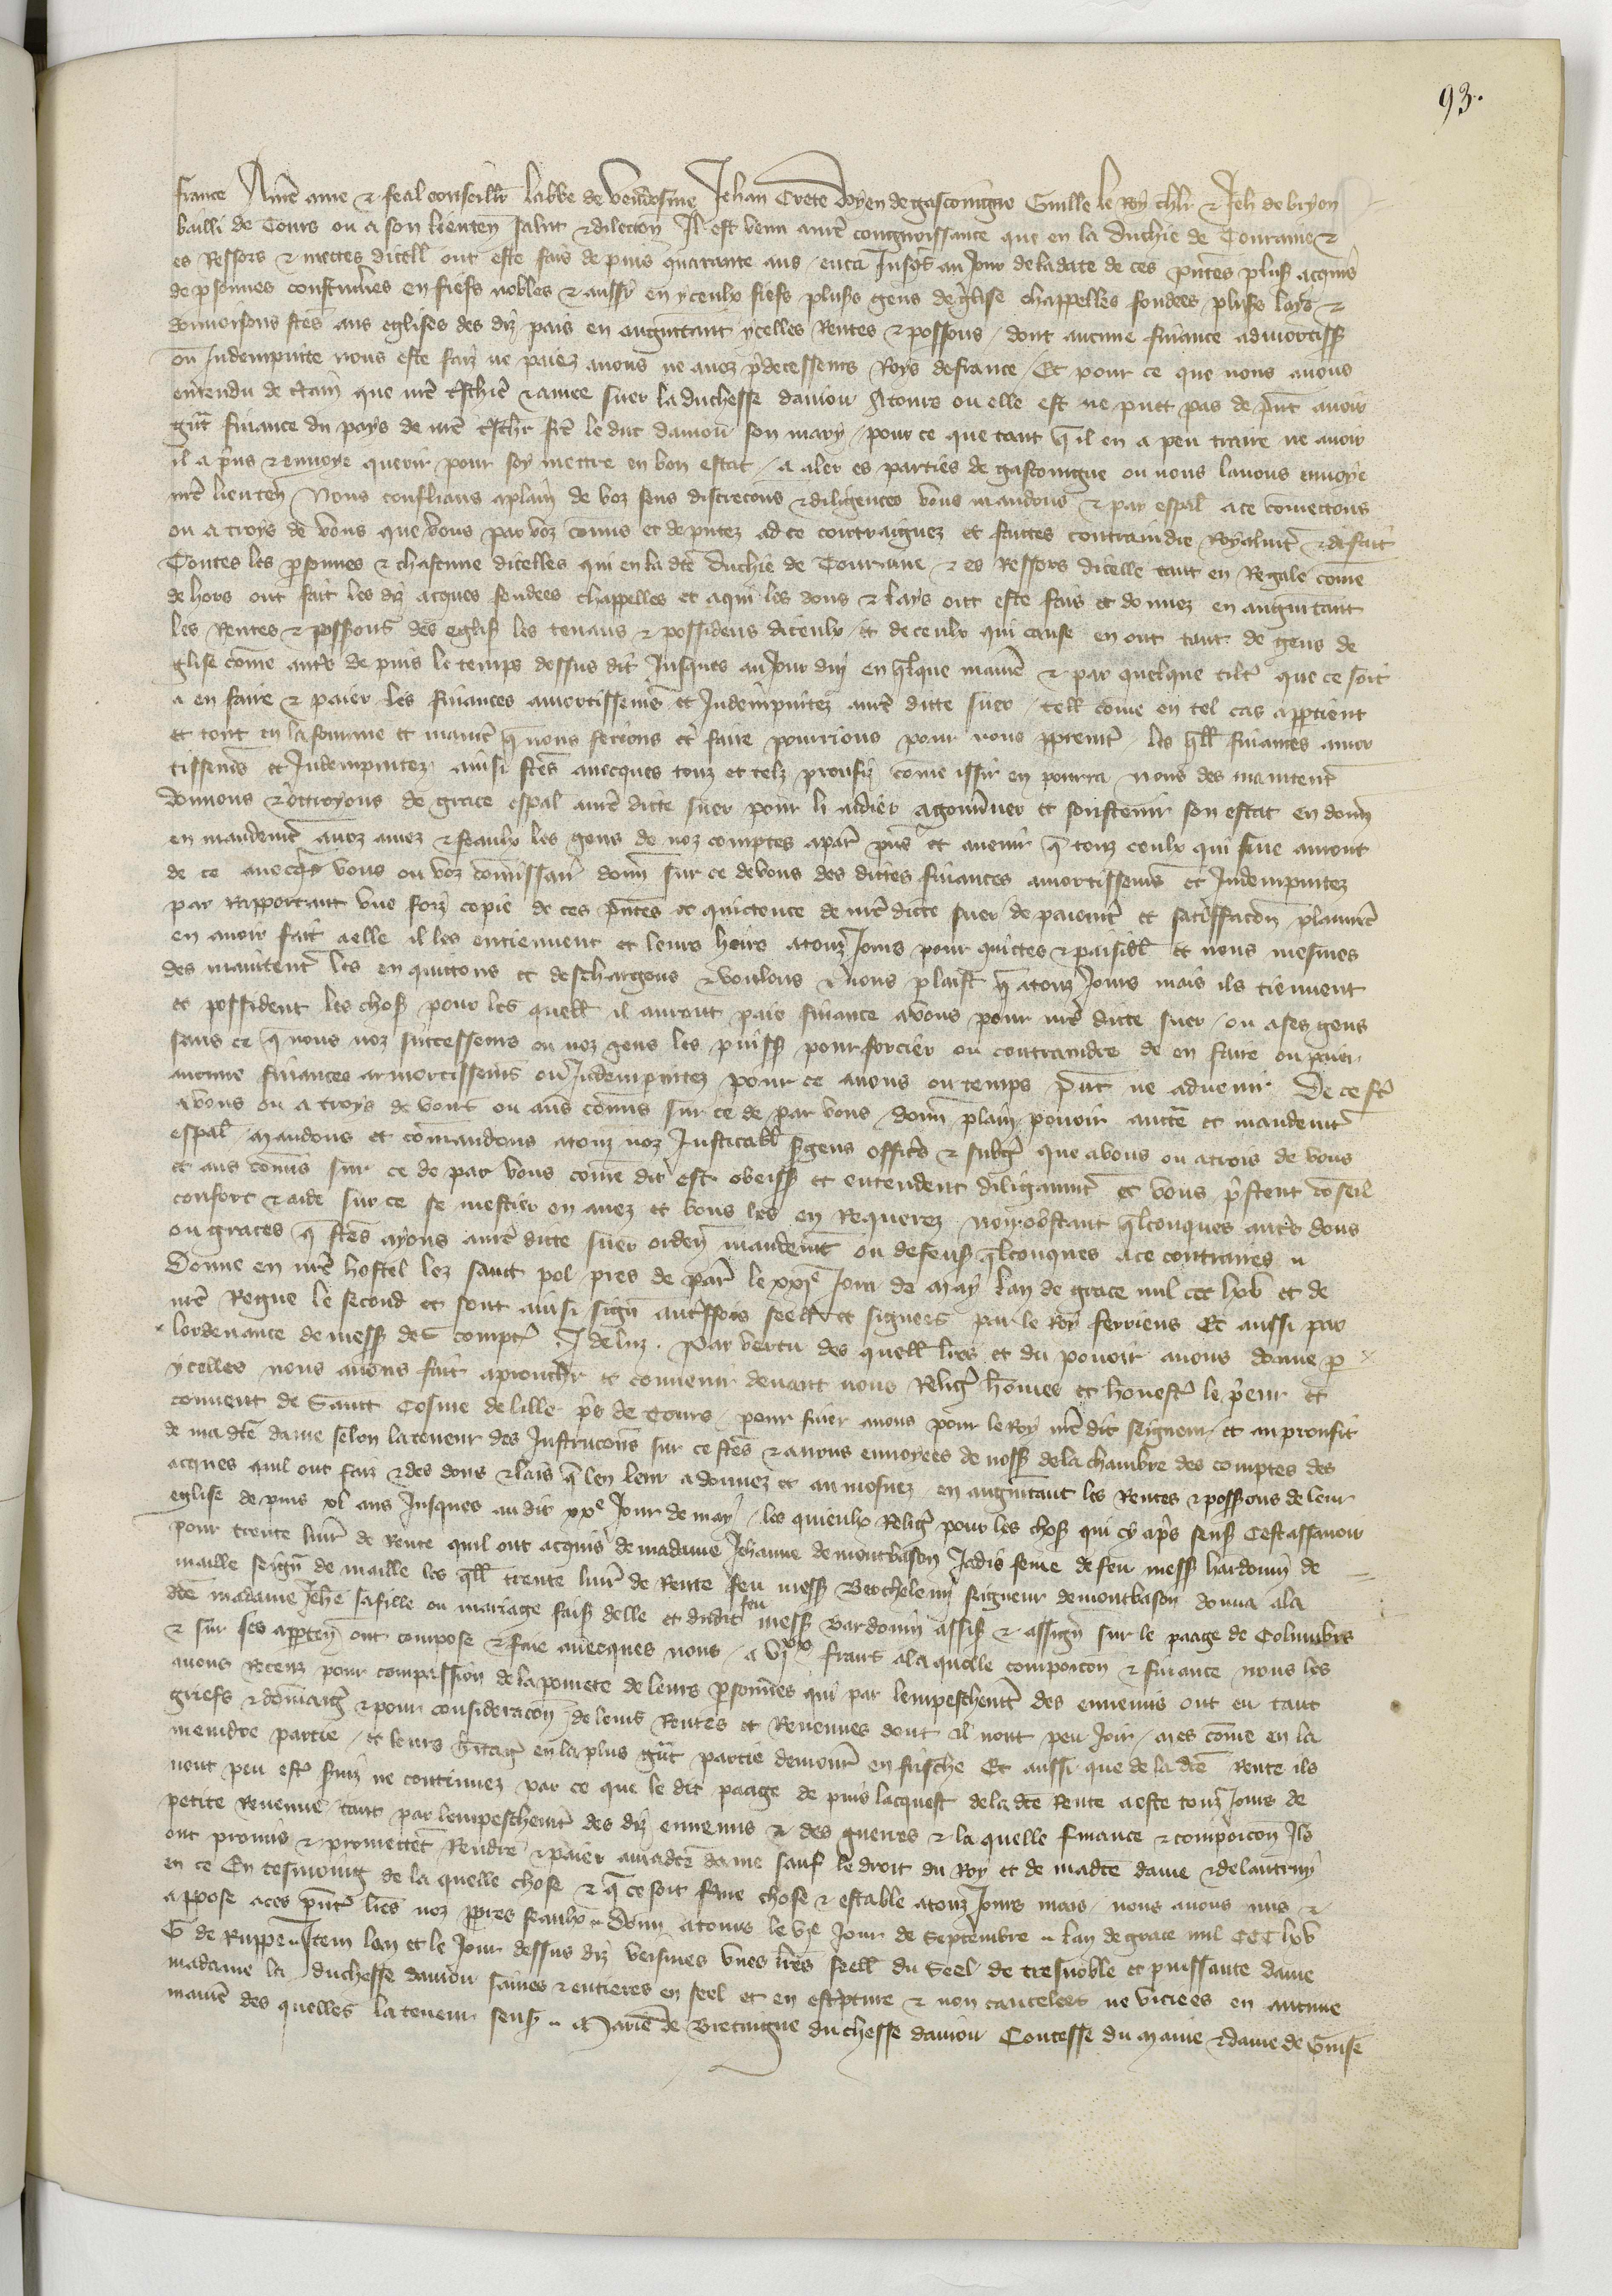 93.
france A nre ame & feal conseillr labbe de vendosme Jehan Crete doyen de gascoingne Guille le Roy chlr & Jeh de bryon
bailli de Tours ou a son lieuten salut & dilecion Il est venu a nre congnoissance que en la duchie de Touraine &
es Ressors & mectes dicelle ont este fais depuis quarante ans enca Jusqs au Jour de la date de ces pntes plus acquis
de psonnes coustumes en fiefs nobles & aussi en yceulx fiefs pluss gens deglise chappelles fondees pluss lays &
donnoisons ftes aus eglises des diz pais en augmtant ycelles Rentes & possons dont aucune finance admortiss
ou Indempnite nous este faiz ne paiez a nous ne a noz pdecesseurs Roys de france Et pour ce que nous avons
entendu de ctain que nre tschiere & amee suer la duchesse daniou A tours ou elle est ne puet pas de pnt avoir
gnt finance du pays de nre tschr fre le duc daniou son mary pour ce que tant q il en a peu traire ne avoir
il a pns & envoye querir pour soy mettre en bon estat a aler es parties de gascoingne ou nous lavons envoye
nre lieuten Nous conflians a plain de voz sens discrecons & diligences vous mandons & par espal a ce comettons
ou a troys de vous que vous par voz comis et deputez ad ce contraignez et faittes contraindre Royalmt & de fait
Toutes les psonnes & chascune dicelles qui en la dte duchie de Touraine & es Ressors dicelle tant en Regale come
dehors ont fait les diz acques fondees chappelles et a qui les dons & lays ont este fais et donnez en augmtant
les Rentes & possons des eglis les tenans & possidens diceulx et de ceulx qui cause en ont tant de gens de
glise come autrs depuis le temps dessus dit Jusques au Jour duy en qlque manie & par quelque tiltre que ce soit
a en faire & paier les finances amortissemes et Indempnitez a nre ditte suer tell come en tel cas apptient
et tout en la fourme et manie q nous ferions et faire pourrions pour nous ppremt les qll finances amor
tissemes et Indempnitez ainsi ftes avecques touz et telz proufiz come issir en pourra nous des maintent
donnons & ottroyons de grace espal a nre ditte suer pour li aidier a gouvner et soustenir son estat en donn
en mandemt a noz amez & feaulx les gens de noz comptes a par pns et avenir q touz ceulx qui fine auront
de ce avecqs vous ou voz comissair donn sur ce de vous des dittes finances amortissemes et Indempnitez
par Rapportant vue sorz copie de ces pntes & quictence de nre ditte suer de paiemt et satiffacon plainre
en avoir fait a elle il les entiennent et leurs heirs a touz Jours pour quittes & paisibl et nous mesmes
des maintent les en quittons et deschargons & voulons & nous plaist q a touz Jours mais ils tiennent
et possident les chos pour les quell il auront paie finance a vous pour nre ditte suer ou a ses gens
sans ce q nous noz successeurs ou noz gens les puiss pourforcier ou contraindre de en faire ou paier
aucune finances armortissemes ou Indempnitez pour ce a nous ou temps pnt ne advenir De ce fe
a vous ou a troys de vous ou aus comis sur ce de par vous donn plain pouoir aucte et mandemt
espal Mandons et comandons a touz noz Justicabl sgens officrs & subgz que a vous ou a trois de vous
et aus comis sur ce de par vous come dit est obeiss et entendent diligaumt et vous pstent coseil
confort & aide sur ce se mestier en avez et vous les en Requerez nonobstant qlconques autrs dons
ou graces q ftes ayons a nre ditte suer orden mandemt ou defens qlconques a ce contraires
Donne en nre hostel lez saint pol pres de par le xxje Jour de may lan de grace mil ccc lxv et de
nre Regne le second et sont ainsi sign autrffois seell et signees par le Roy ferriens Et aussi par
lordenance de mess des comptz J de luz. Par vertu des quell lres et du pouoir a nous donne p
ycelles nous avons fait aprouchr et convenir devant nous Religz homes et honestz le prieur et
couvent de Saint Cosme de lille prs de Tours pour finer a nous pour le Roy nre dit seigneur et au proufit
de ma dte dame selon la teneur des Instrucons sur ce ftes & a nous envoyees de noss de la chambre des comptes des
acques quil ont faiz & des dons & lais q len leur a donnez et aumosnez en augmtant les Rentes & possons de leur
eglise depuis xl ans Jusques au dit xxe Jour de may les quieulx Religz pour les chos qui cy aprs sens Cest assavoir
pour trente livr de Rente quil ont acquis de madame Jehanne de montbason Jadis feme de feu mess hardouin de
maille seign de maille les qll trente livr de Rente feu mess Berthelemi seigneur de montbason donna a la
dte madame Jehe sa fille ou mariage fais delle et dudit feu mess hardouin assis & assign sur le paage de Columbrs
& sur ses apparten ont compose & fine avecques nous a vjxx frans a la quelle compoicon & finance nous les
avons Receuz pour compassion de la povrete de leurs psonnes qui par lempeschemt des ennemis ont eu tant
griefs & domaigs & pour consideracon de leurs Rentes et Revenues dont il nont peu Joir mes come en la
meindre partie et leurs hritagz en la plus gnt partie demour en frische Et aussi que de la dte Rente ils
nont peu estr finz ne continuez par ce que le dit paage depuis lacquest de la dte Rente a este touz Jours de
petite Revenue tant par lempeschemt des diz ennemis & des guerres & la quelle finance & compoicon Ils
ont promis & promettent Rendre & paier a madte dame sauf le droit du Roy et de madte dame & de lautruy
en ce En tesmoing de la quelle chose & q ce soit fme chose & estable a touz Jours mais nous avons mis &
appose a ces pntz lres noz ppres seaulx Donn a tours le vje Jour de Septembre lan de grace mil CCC lxv
G de Ruppe Item lan et le Jour dessus diz veismes unes lres seell du Seel de tresnoble et puissante dame
madame la duchesse daniou saines & entieres en seel et en escpture & non cancelees ne viciees en aucune
manie des quelles la teneur sens Marie de Bretaigne duchesse daniou Contesse du Maine & dame de Guise